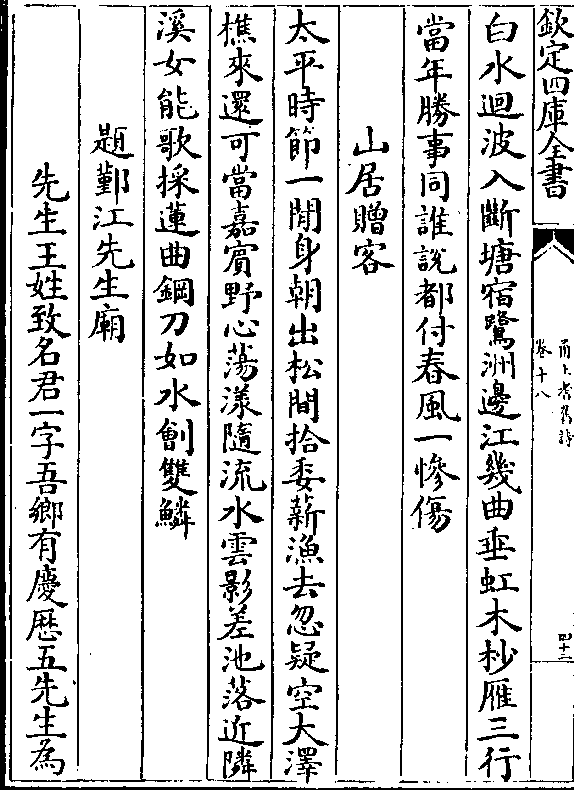 欽定四庫全書
甬上耆舊詩
卷十八
四十三
白水迴波入斷塘宿鷺洲邊江幾曲垂虹木杪雁三行
當年勝事同誰說都付春風一慘傷
山居贈客
太平時節一閒身朝出松間拾委薪漁去忽疑空大澤
樵來還可當嘉賓野心蕩漾隨流水雲影差池落近隣
溪女能歌採蓮曲鋼刀如水劊雙鱗
題鄞江先生廟
先生王姓致名君一字吾鄉有慶厯五先生為